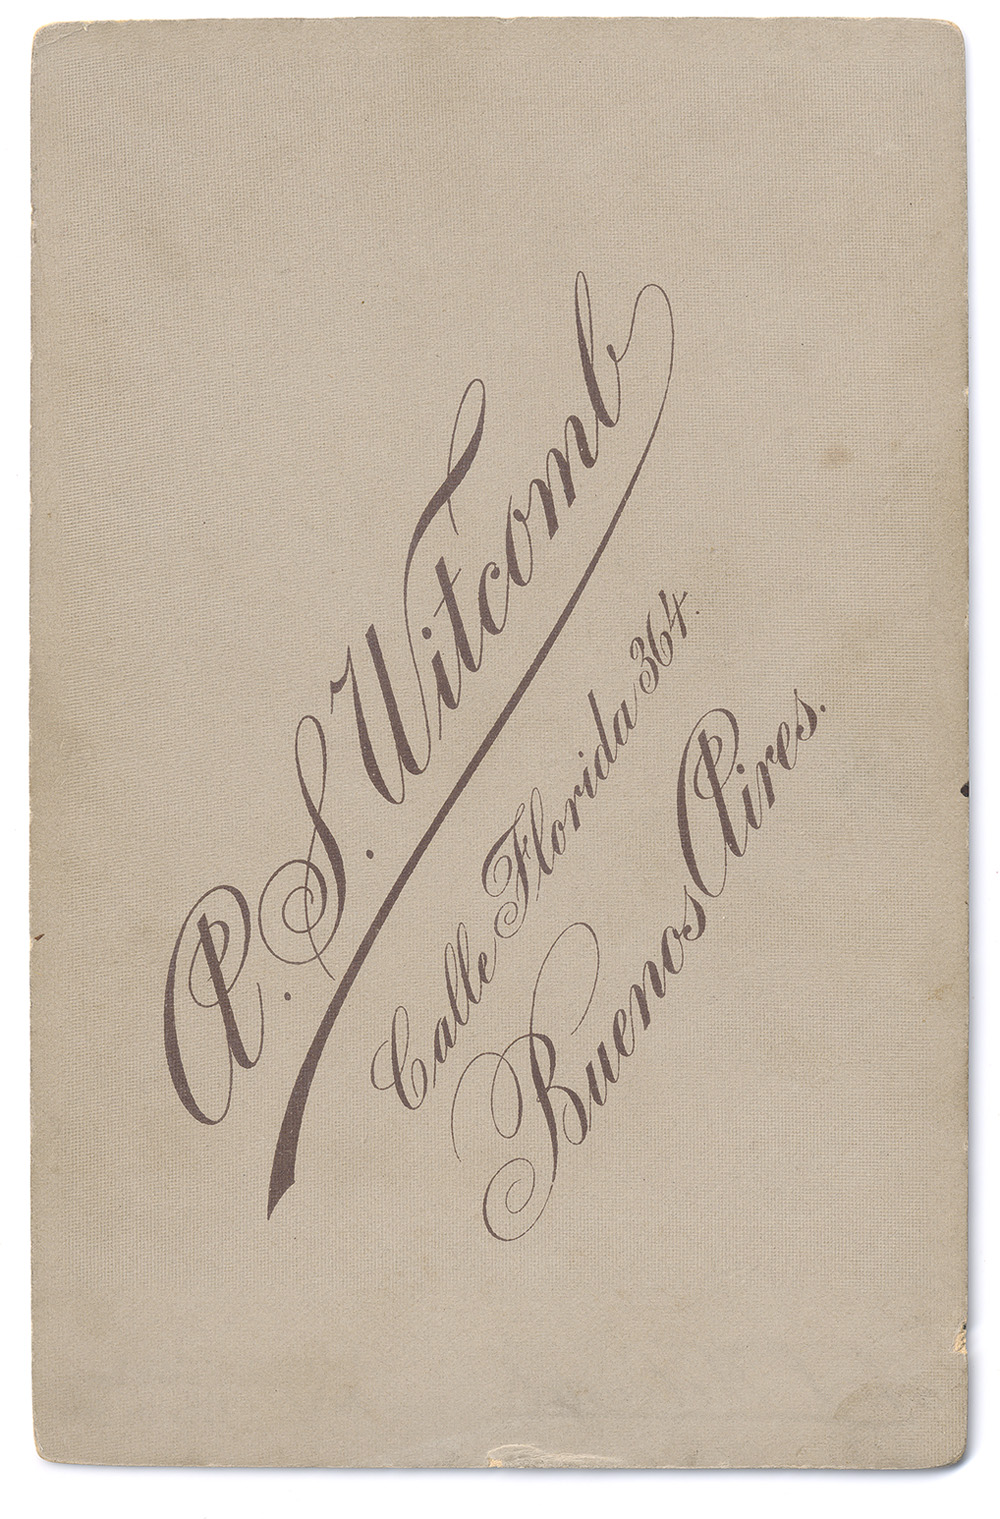 A. S. Witcomb
Calle Florida 364.
Buenos Aires.